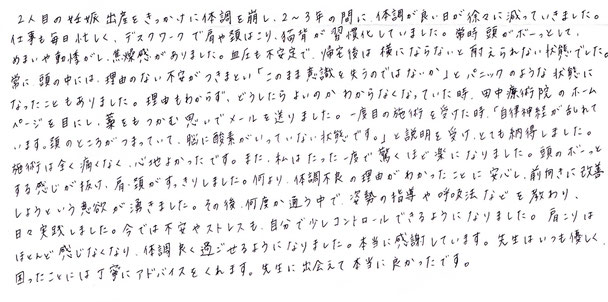 2人目の妊娠出産をきっかけに体調を崩し、2～3年の間に、体調が良い日が徐々に減っていきました。
仕事も毎日忙しく、デスクワークで肩や頭はこり、猫背が習慣化していました。常時頭がボーっとして、
めまいや動悸がし、焦燥感がありました。血圧も不安定で、帰宅後は横にならないと耐えられない状態でした。
常に頭の中には、理由のない不安がつきまとい「このまま意識を失うのではないか」とパニックのような状態に
なったこともありました。理由もわからず、どうしたらよいのかわからなくなっていた時、田中療術院のホーム
ページを目にし、藁をもつかむ思いでメールを送りました。一度目の施術を受けた時、「自律神経が乱れて
います。頭のところがつまっていて、脳に酸素がいっていない状態です。」と説明を受け、とても納得しました。
施術は全く痛くなく、心地よかったです。また、私はたった一度で驚くほど楽になりました。頭のボーっと
する感じが抜け、肩・頭がすっきりしました。何より、体調不良の理由がわかったことに安心し、前向きに改善
しようという意欲が湧きました。その後、何度か通う中で、姿勢の指導や呼吸法などを教わり、
日々実践しました。今では不安やストレスも、自分で少しコントロールできるようになりました。肩こりは
ほとんど感じなくなり、体調良く過ごせるようになりました。本当に感謝しています。先生はいつも優しく、
困ったことには丁寧にアドバイスをくれます。先生に出会えて本当に良かったです。